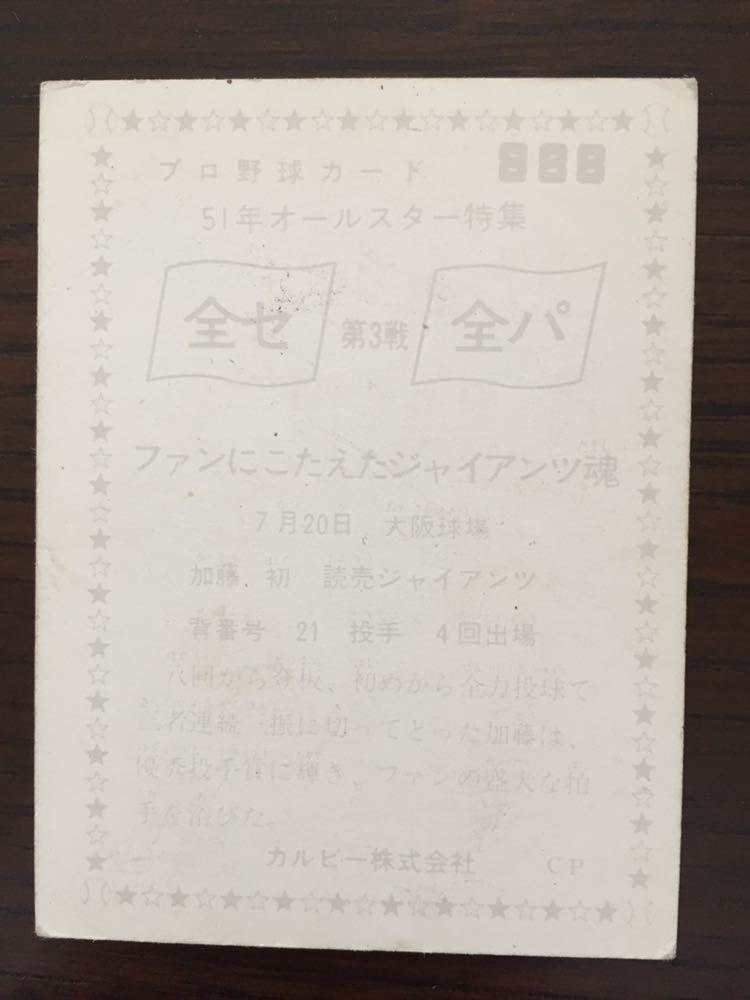 プロ野球カード 888
51年オールスター特集
全セ 第3戦 全パ
ファンにこたえたジャイアンツ魂
7月20日 大阪球場
加藤 初 読売ジャイアンツ
背番号 21 投手 4回出場
八回から登板、初めから全力投球で
三者連続三振に切ってとった加藤は、
優秀投手賞に輝き、ファンの盛大な拍
手を浴びた。
カルビー株式会社 CP